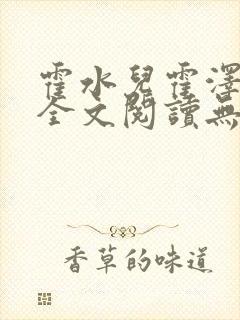 霍水兒霍澤
全文閱讀無
香草的味道